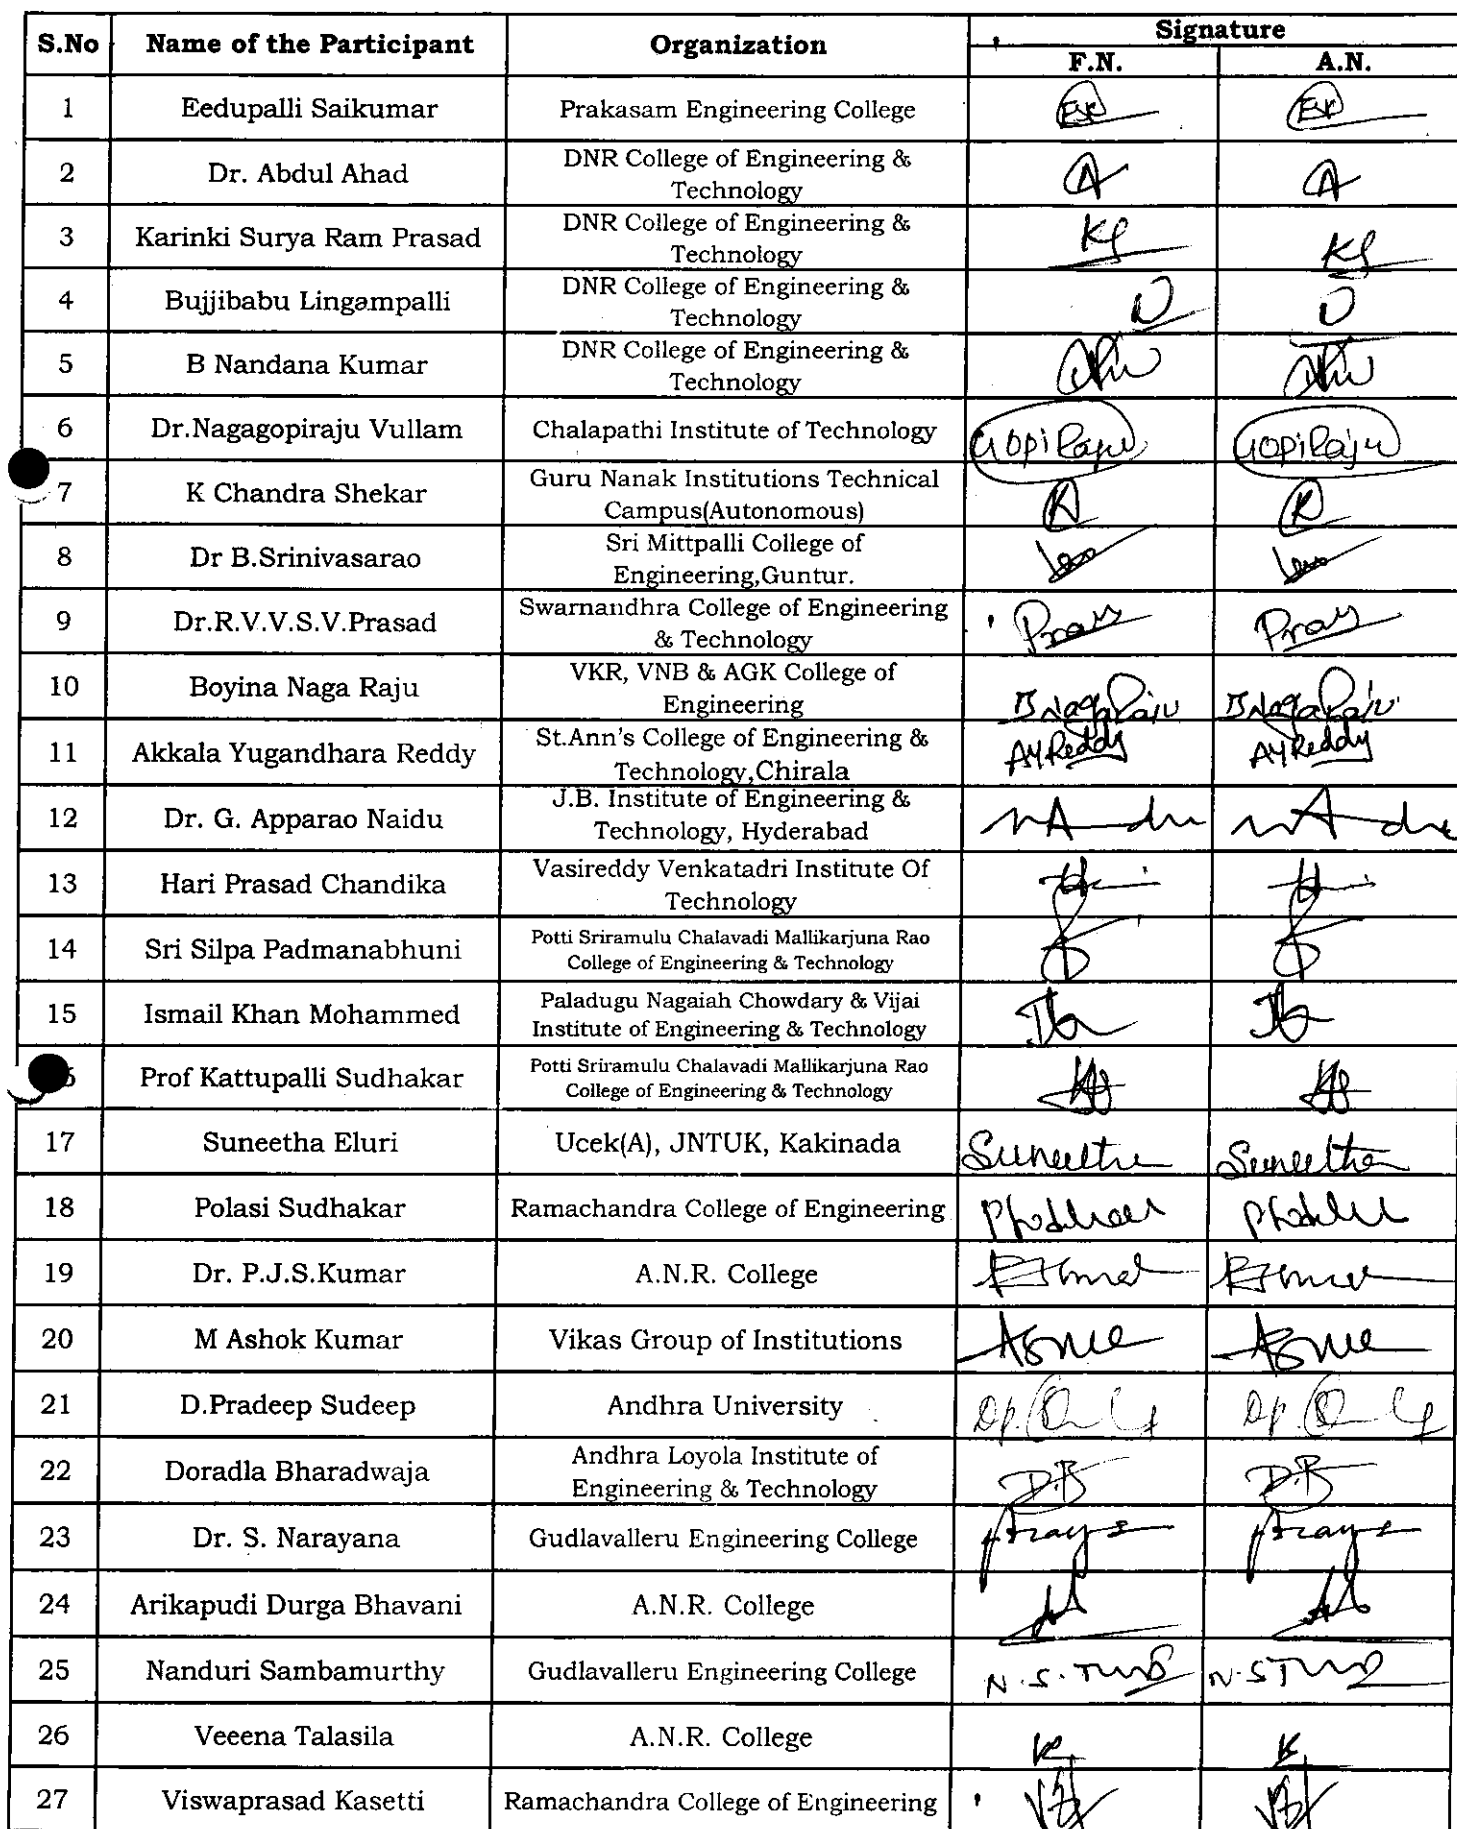 S.No Name of the Participant Organization Signature
F.N. A.N.
1 Eedupalli Saikumar Prakasam Engineering College
2 Dr. Abdul Ahad DNR College of Engineering &
Technology
3 Karinki Surya Ram Prasad DNR College of Engineering &
Technology
4 Bujjibabu Lingampalli DNR College of Engineering &
Technology
5 B Nandana Kumar DNR College of Engineering &
Technology
6 Dr.Nagagopiraju Vullam Chalapathi Institute of Technology GopiRaju GopiRaju
7 K Chandra Shekar Guru Nanak Institutions Technical
Campus(Autonomous)
8 Dr B.Srinivasarao Sri Mittpalli College of
Engineering,Guntur.
9 Dr.R.V.V.S.V.Prasad Swarnandhra College of Engineering
& Technology
10 Boyina Naga Raju VKR, VNB & AGK College of
Engineering B NagaRaju B NagaRaju
11 Akkala Yugandhara Reddy St.Ann's College of Engineering &
Technology,Chirala AYReddy AYReddy
12 Dr. G. Apparao Naidu J.B. Institute of Engineering &
Technology, Hyderabad
13 Hari Prasad Chandika Vasireddy Venkatadri Institute Of
Technology
14 Sri Silpa Padmanabhuni Potti Sriramulu Chalavadi Mallikarjuna Rao
College of Engineering & Technology
15 Ismail Khan Mohammed Paladugu Nagaiah Chowdary & Vijai
Institute of Engineering & Technology
6 Prof Kattupalli Sudhakar Potti Sriramulu Chalavadi Mallikarjuna Rao
College of Engineering & Technology
17 Suneetha Eluri Ucek(A), JNTUK, Kakinada Suneetha Suneetha
18 Polasi Sudhakar Ramachandra College of Engineering
19 Dr. P.J.S.Kumar A.N.R. College
20 M Ashok Kumar Vikas Group of Institutions
21 D.Pradeep Sudeep Andhra University
22 Doradla Bharadwaja Andhra Loyola Institute of
Engineering & Technology D.B D.B
23 Dr. S. Narayana Gudlavalleru Engineering College
24 Arikapudi Durga Bhavani A.N.R. College
25 Nanduri Sambamurthy Gudlavalleru Engineering College
26 Veeena Talasila A.N.R. College
27 Viswaprasad Kasetti Ramachandra College of Engineering